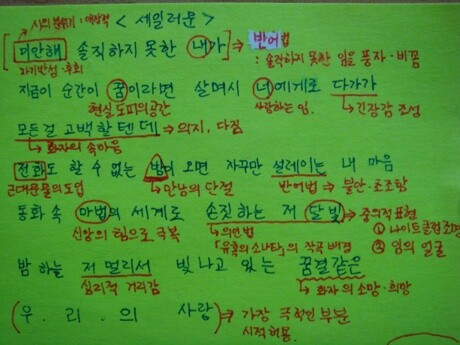 시의 분위기 : 애상적 <세일러문>
[미안해 솔직하지 못한 내가] → 반어법
자기반성·후회 : 솔직하지 못한 임을 풍자·비꼼
지금이 순간이 꿈이라면 살며시 너에게로 다가가
현실 도피의 공간 사랑하는 임. → 긴장감 조성
모든걸 고백할텐데 ⇒ 의지, 다짐
→ 화자의 속마음
전화도 할 수 없는 밤이 오면 자꾸만 설레이는 내 마음
근대문물의 도입 → 만남의 단절 반어법 → 불안·초조함
동화 속 마법의 세계로 손짓하는 저 달빛 ⇒ 중의적 표현
신앙의 힘으로 극복 → 의인법 ① 나이트클럽 조명
「유곡의 소나타」의 작곡 배경 ② 임의 얼굴
밤 하늘 저 멀리서 빛나고 있는 꿈결같은
심리적 거리감 → 화자의 소망·희망
(우.리.의 사랑) ⇒ 가장 극적인 부분
시적허용.